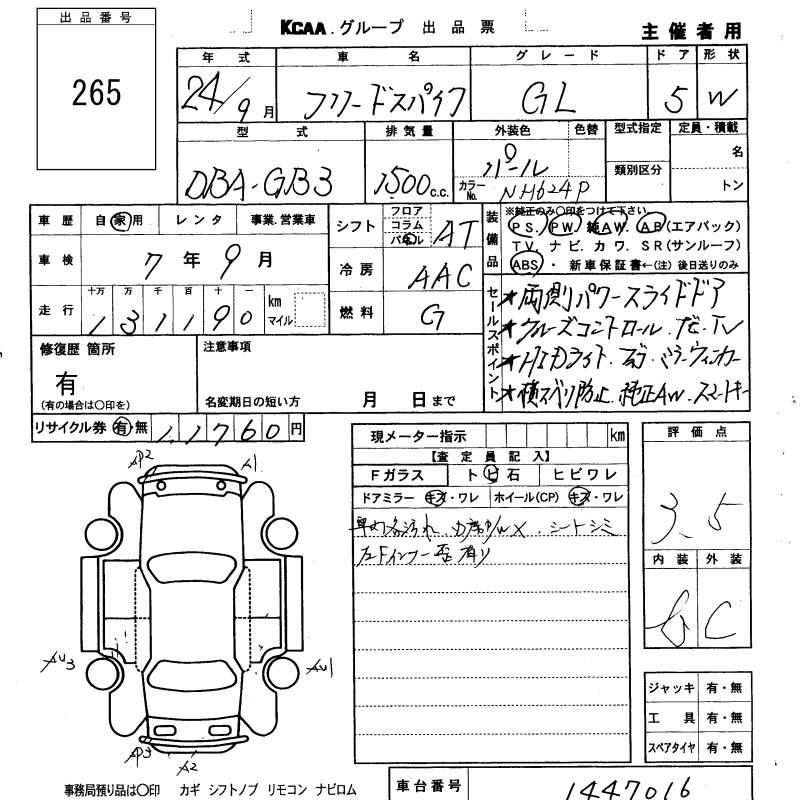 出品番号
265
KCAA.グループ 出品票
主催者用
年式 車名 グレード ドア 形状
24/9月 フリードスパイク GL 5 W
型式 排気量 外装色 色替 型式指定 定員・積載
DBA-GB3 1500c.c. パール 名
類別区分
カラーNo. NH624P トン
車歴 自家用 レンタ 事業.営業車
シフト フロア コラム パネル AT
車検 7年9月
冷房 AAC
走行 十万 万 千 百 十 一 km マイル
131190
燃料 G
装備品
※純正のみ〇印をつけて下さい
P S. PW. 純AW. AB(エアバック)
TV. ナビ. カワ. SR(サンルーフ)
ABS ・ 新車保証書←(注)後日送りのみ
セールスポイント
★両側パワースライドドア
★クルーズコントロール.ナビ.TV
★HIDライト.フォグ.ミラーウィンカー
★横スベリ防止.純正AW.スマートキー
修復歴 箇所
有
(有の場合は〇印を)
注意事項
名変期日の短い方 月 日まで
リサイクル券 有 無 11760円
現メーター指示 km
【査定員記入】
Fガラス トビ石 ヒビワレ
ドアミラー キズ・ワレ ホイール(CP) キズ・ワレ
シートシミ
評価点
3.5
内装 外装
C
AP2 A1
AU3 AU1
AP3 A2
ジャッキ 有・無
工具 有・無
スペアタイヤ 有・無
事務局預り品は〇印 カギ シフトノブ リモコン ナビロム
車台番号 1447016